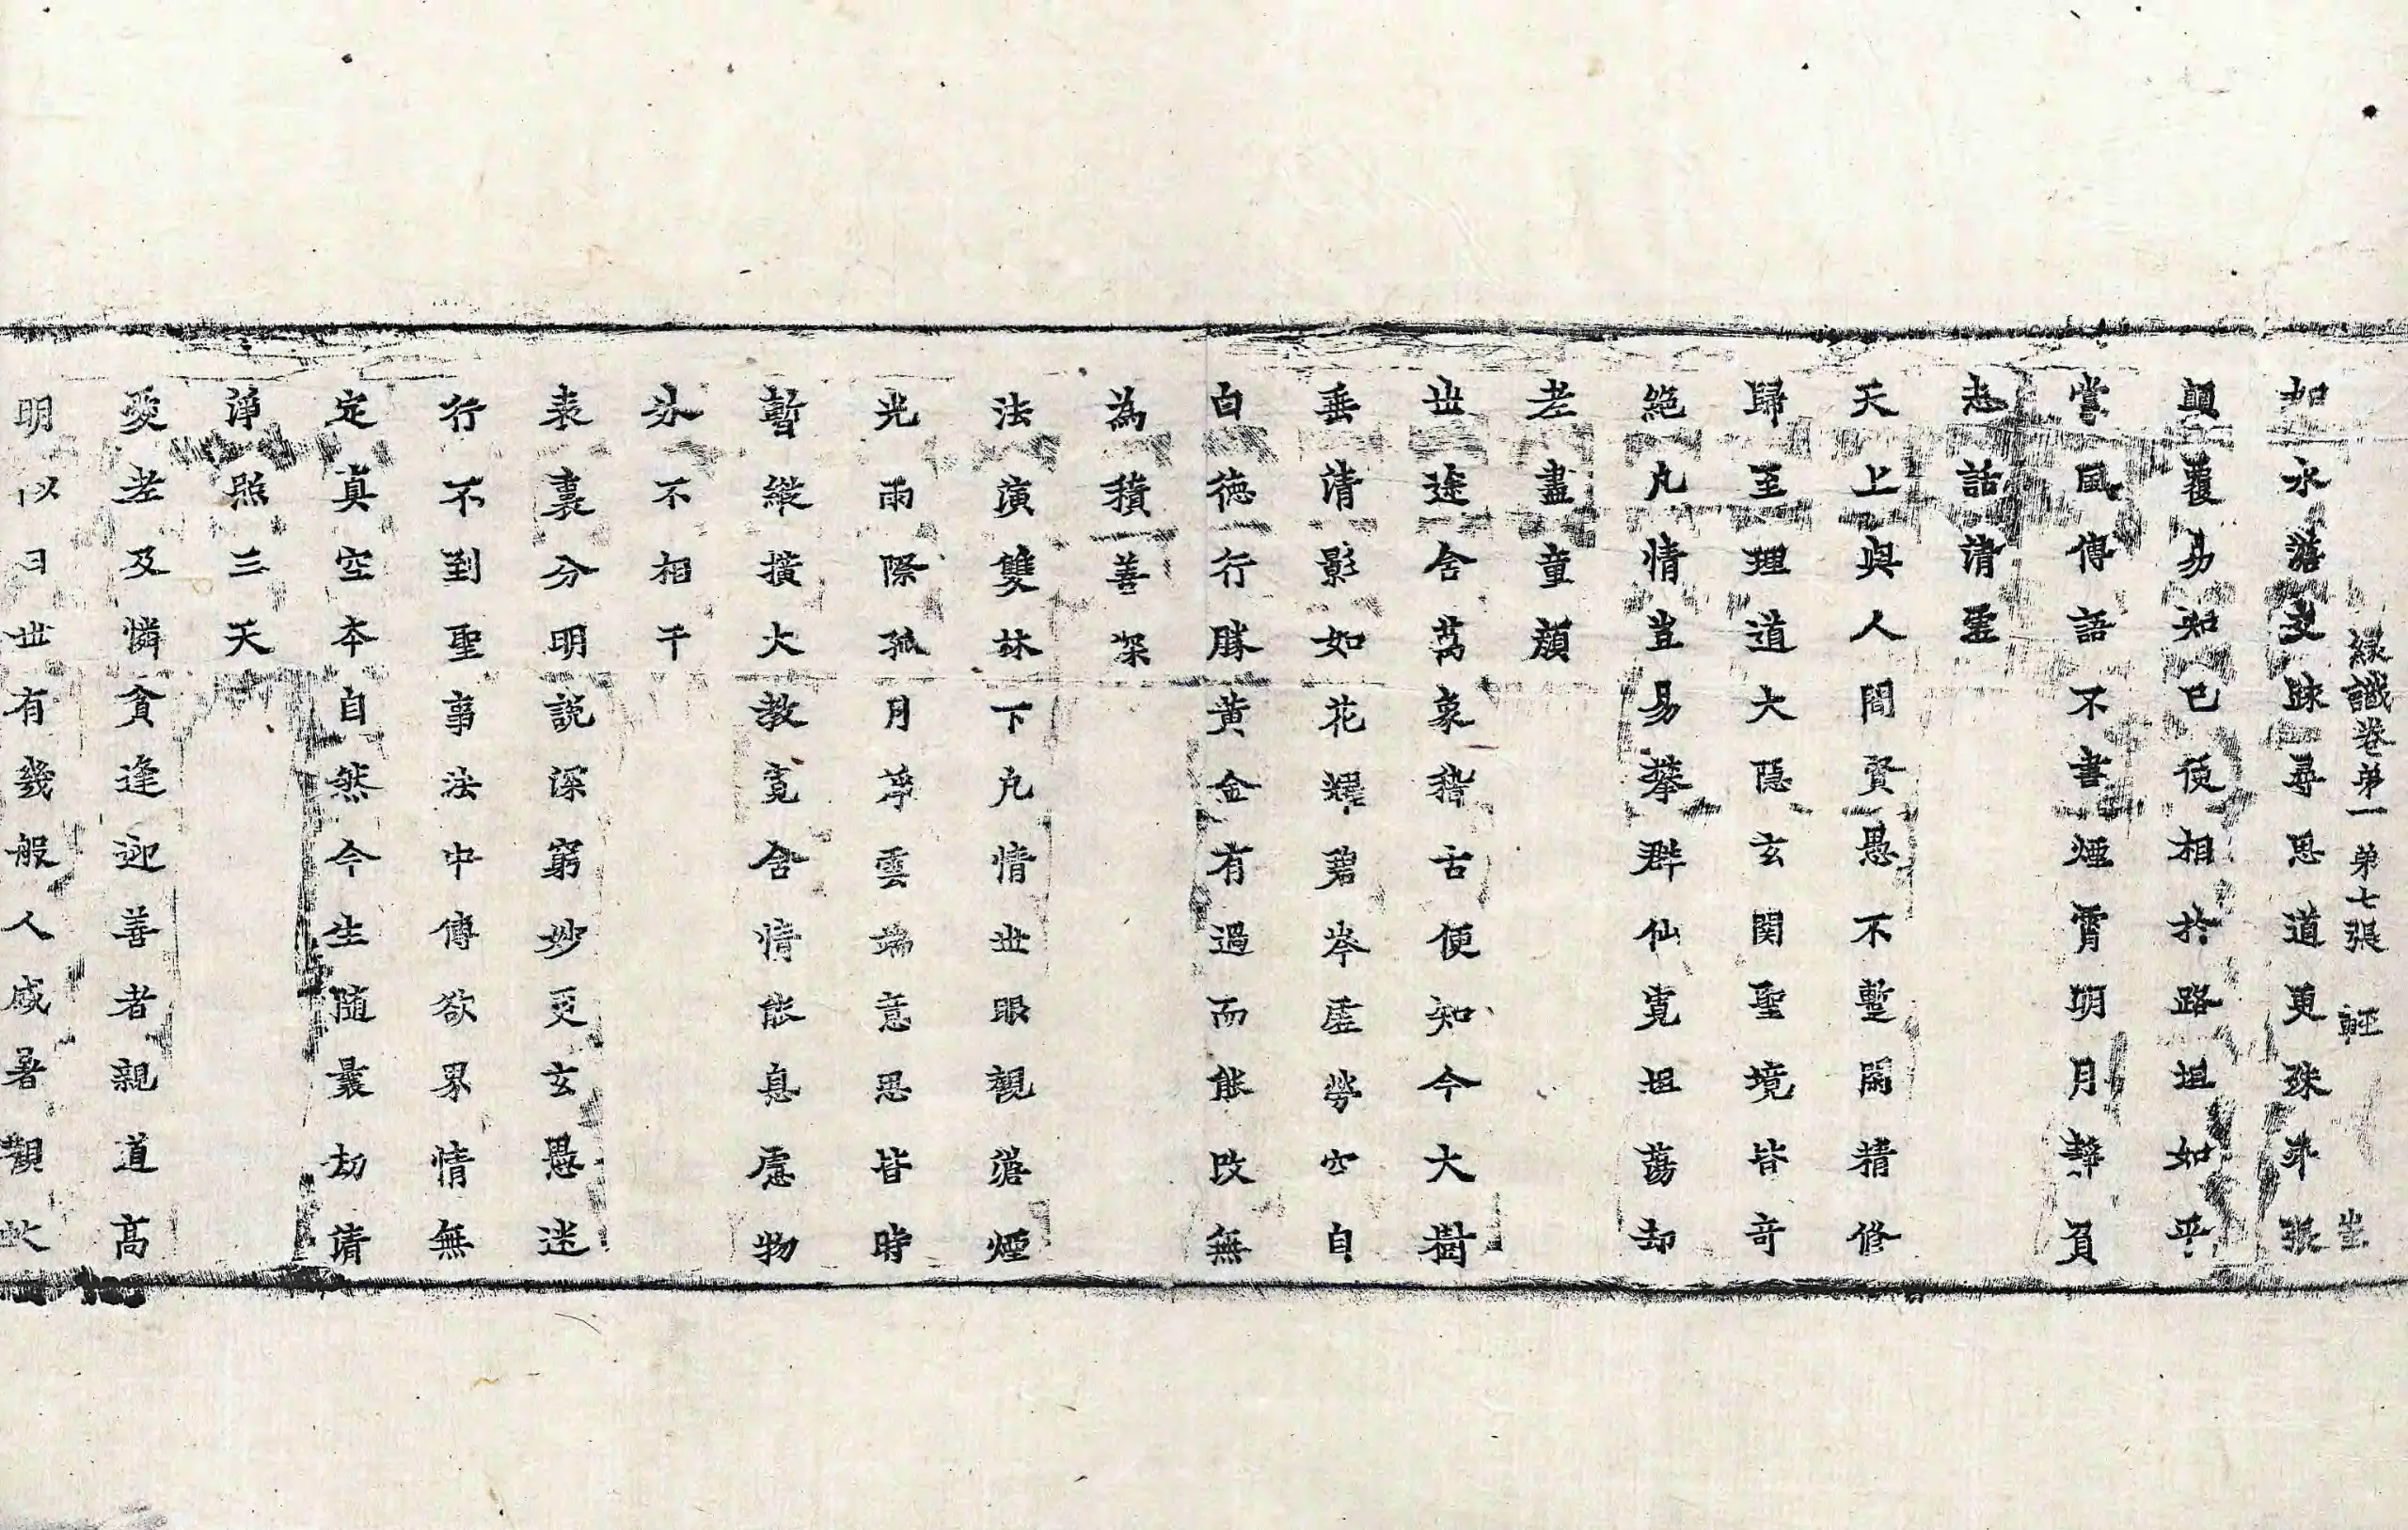 緣識卷第一 第七張 𨋢 㘴
如水淡交踈尋思道更殊乖張
顛覆易知已使相於路坦如乎
常風傳語不書煙霄明月靜負
志話清虛
天上與人間賢愚不蹔閑精修
歸至理道大隱玄関聖境皆奇
絶凡情豈易攀群仙寬坦蕩却
老盡童顔
世途含萬象稽古便知今大樹
垂清影如花耀碧岑虛勞空自
白德行勝黃金有過而能改無
為積善深
法演雙林下凡情世眼觀淡煙
光雨際孤月淨雲端意思皆時
暫縱擴大教寬含情能息慮物
外不相干
表裏分明說深窮妙更玄愚迷
行不到聖事法中傳欲界情無
定真空本自然今生隨曩劫清
淨照三天
愛老及憐貧逢迎善者親道高
明以日世有幾般人咸著觀此